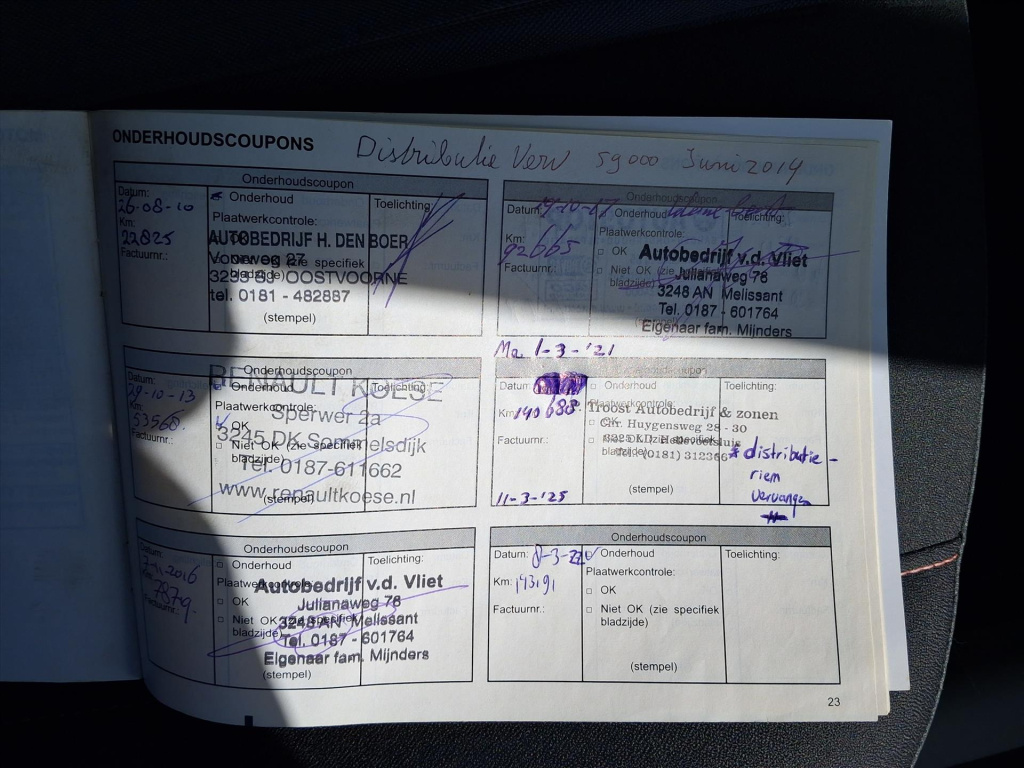 ONDERHOUDSCOUPONS
Distributie Verv 59000 Juni 2014
Onderhoudscoupon
Datum:
26-08-10
Km:
22825
Factuurnr.:
Onderhoud
Plaatwerkcontrole:
OK
Niet OK (zie specifiek
bladzijde)
Toelichting:
AUTOBEDRIJF H. DEN BOER
weg 27
OOSTVOORNE
tel. 0181 - 482887
(stempel)
Onderhoudscoupon
Datum:
Km:
92665
Factuurnr.:
Onderhoud
Plaatwerkcontrole:
OK
Niet OK (zie
bladzijde)
Toelichting:
Autobedrijf v.d. Vliet
Julianaweg 78
3248 AN Melissant
Tel. 0187 - 601764
Eigenaar fam. Mijnders
Onderhoudscoupon
Datum:
29-10-13
53560.
Factuurnr.:
Onderhoud
Plaatwerkcontrole:
OK
Niet OK (zie specifiek
bladzijde)
Toelichting:
RENAULT KOESE
Sperwer 2a
3245 DK Sommelsdijk
Tel. 0187-611662
www.renaultkoese.nl
(stempel)
Ma 1-3-'21
Onderhoudscoupon
Datum:
Km:
140688.
Factuurnr.:
11-3-'25
Onderhoud
Plaatwerkcontrole:
OK
bladzijde)
Toelichting:
Troost Autobedrijf & zonen
Chr. Huygensweg 28 - 30
Hellevoetsluis
Tel. (0181) 312366
(stempel)
* distributie -
riem
vervangen
Onderhoudscoupon
Datum:
2016
Factuurnr.:
Onderhoud
Plaatwerkcontrole:
OK
Niet OK (zie specifiek
bladzijde)
Toelichting:
Autobedrijf v.d. Vliet
Julianaweg 78
3248 AN Melissant
Tel. 0187 - 601764
Eigenaar fam. Mijnders
(stempel)
Onderhoudscoupon
Datum:
Km:
Factuurnr.:
Onderhoud
Plaatwerkcontrole:
OK
Niet OK (zie specifiek
bladzijde)
Toelichting:
(stempel)
23